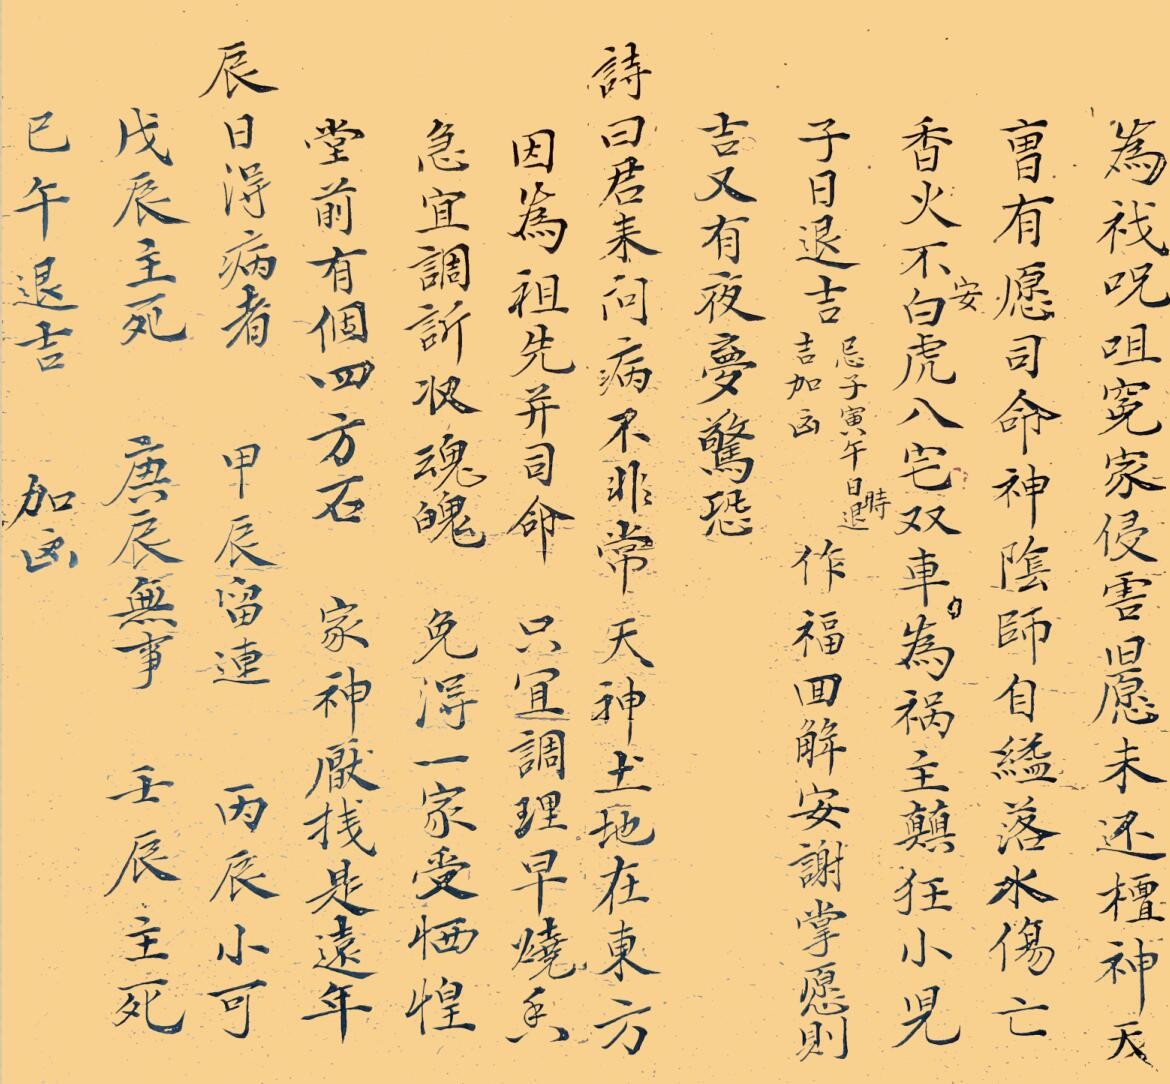 為祴呪咀冤家侵害旧愿未还檀神天
曹有愿司命神陰師自縊落水傷亡
香火不安白虎八宅双車為祸主顛狂小児
子日退吉 忌子寅午日時退 吉加凶 作福回解安謝掌愿則
吉又有夜夢驚恐
詩曰君来问病不非常天神土地在東方
因為祖先并司命 只宜調理早燒香
急宜調訢收魂魄 免淂一家受恓惶
堂前有個四方石 家神厭桟是遠年
辰日淂病者 甲辰留連 丙辰小可
戊辰主死 庚辰無事 壬辰主死
巳午退吉 加凶